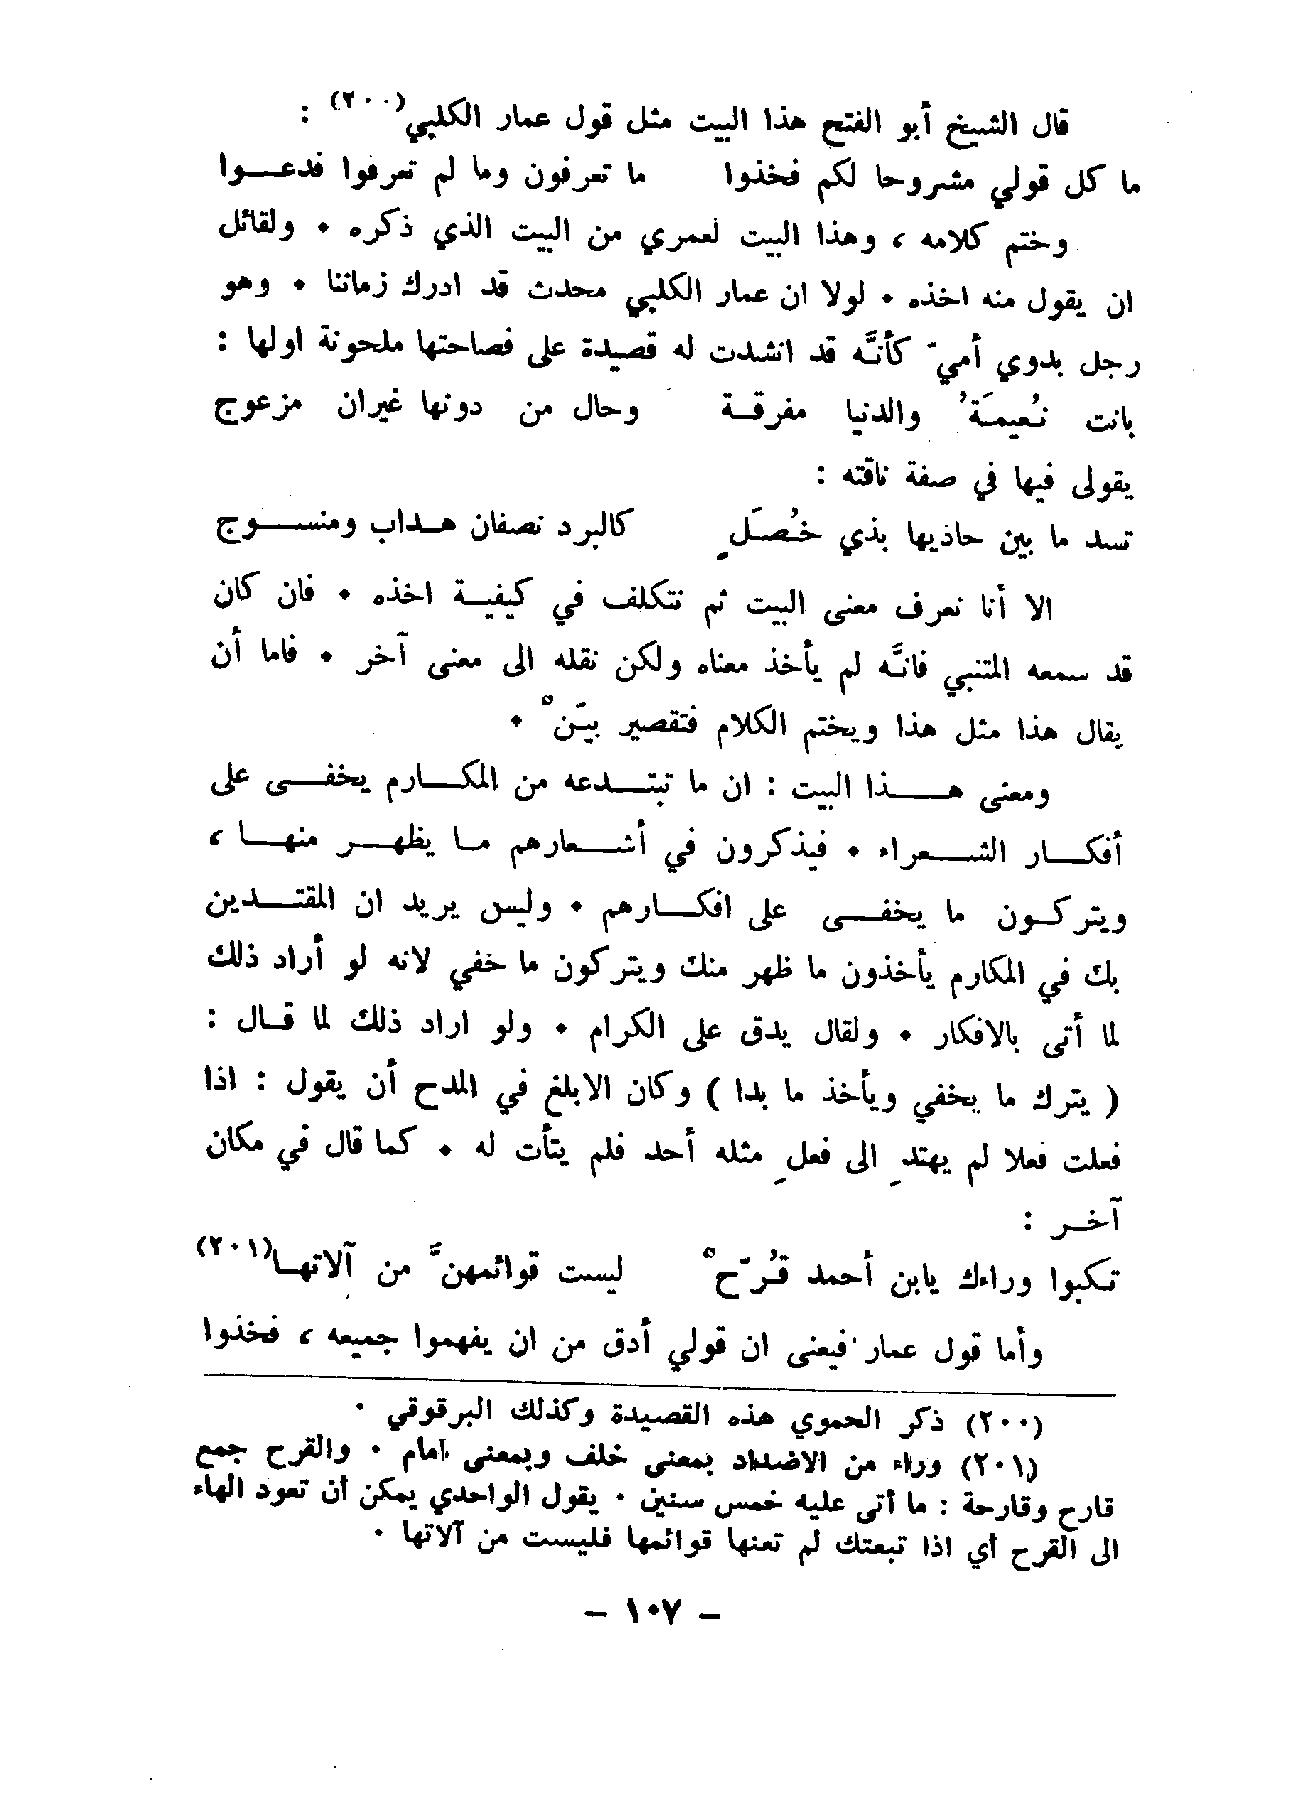 قال الشيخ أبو الفتح هذا البيت مثل قول عمار الكلبي(٢٠٠) :
ما كل قولي مشروحا لكم فخذوا ما تعرفون وما لم تعرفوا فدعـــوا
وختم كلامه ، وهذا البيت لعمري من البيت الذي ذكره ٠ ولقائل
ان يقول منه اخذه ٠ لولا ان عمار الكلبي محدث قد ادرك زماننا ٠ وهو
رجل بدوي أميّ كأنَّه قد انشدت له قصيدة على فصاحتها ملحونة اولها :
بانت نُعيمَةُ والدنيا مفرقـــة وحال من دونها غيران مزعوج
يقولى فيها في صفة ناقته :
تسد ما بين حاذيها بذي خُصَلٍ كالبرد نصفان هـداب ومنســـوج
الا أنا نعرف معنى البيت ثم نتكلف في كيفيـــة اخذه ٠ فان كان
قد سمعه المتنبي فانَّه لم يأخذ معناه ولكن نقله الى معنى آخر ٠ فاما أن
يقال هذا مثل هذا ويختم الكلام فتقصير بيّنْ ٠
ومعنى هـــــذا البيت : ان ما تبتـــدعه من المكـــارم يخفـــى على
أفكـــار الشـــعراء ٠ فيذكرون في أشـــعارهم مـا يظهـــر منهـــا ،
ويتركـــون ما يخفـــى على افكـــارهم ٠ وليس يريد ان المقتـــدين
بك في المكارم يأخذون ما ظهر منك ويتركون ما خفي لانه لو أراد ذلك
لما أتى بالافكار ٠ ولقال يدق على الكرام ٠ ولو اراد ذلك لما قـال :
( يترك ما يخفي ويأخذ ما بدا ) وكان الابلغ في المدح أن يقول : اذا
فعلت فعلا لم يهتدِ الى فعلٍ مثله أحد فلم يتأت له ٠ كما قال في مكان
آخـر :
تكبوا وراءك يابن أحمد قُرّحْ ليست قوائمهنَّ من آلاتهـا(٢٠١)
وأما قول عمار فيعنى ان قولي أدق من ان يفهموا جميعه ، فخذوا
(٢٠٠) ذكر الحموي هذه القصيدة وكذلك البرقوقي ٠
(٢٠١) وراء من الاضداد بمعنى خلف وبمعنى امام ٠ والقرح جمع
قارح وقارحة : ما أتى عليه خمس سنين ٠ يقول الواحدي يمكن أن تعود الهاء
الى القرح أي اذا تبعتك لم تعنها قوائمها فليست من آلاتها ٠
— ١٠٧ —